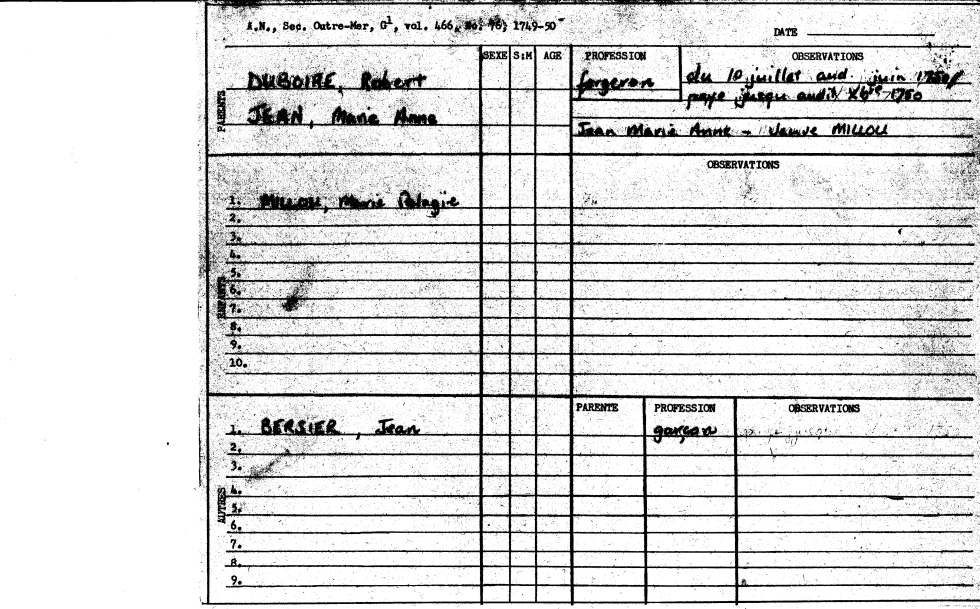 A.N., Sec. Outre-Mer, G1, vol. 466, No. 76; 1749-50
DATE
SEXE S:M AGE PROFESSION OBSERVATIONS
PARENTS
DUBOIRE, Robert forgeron du 10 juillet aud. juin 1750/
paye jusqu audit Xbre 1750
JEAN, Marie Anne
Jean Marie Anne - Veuve MILLOU
OBSERVATIONS
ENFANTS
1. MILLOU, Marie Pelagie
2.
3.
4.
5.
6.
7.
8.
9.
10.
PARENTE PROFESSION OBSERVATIONS
AUTRES
1. BERSIER, Jean garçon
2.
3.
4.
5.
6.
7.
8.
9.